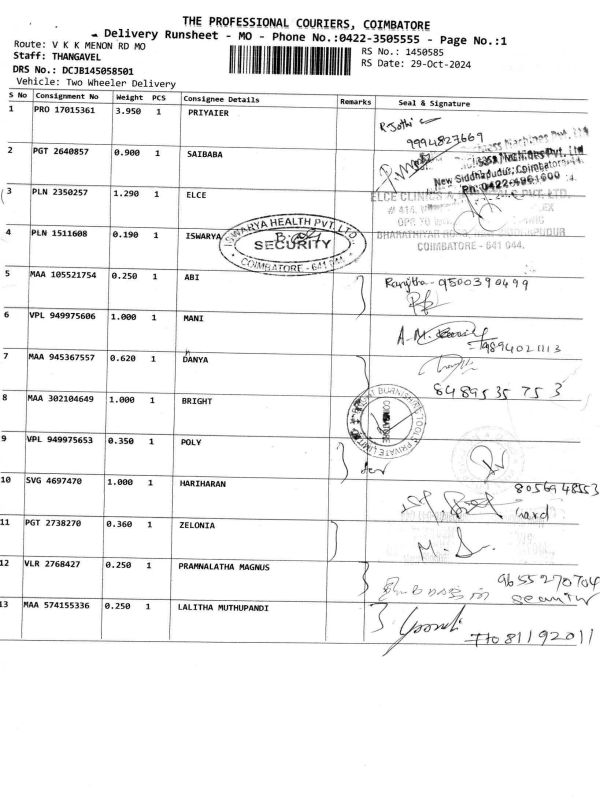 THE PROFESSIONAL COURIERS, COIMBATORE
Delivery Runsheet - MO - Phone No.:0422-3505555 - Page No.:1
Route: V K K MENON RD MO
RS No.: 1450585
Staff: THANGAVEL
RS Date: 29-Oct-2024
DRS No.: DCJB145058501
Vehicle: Two Wheeler Delivery
S No Consignment No Weight PCS Consignee Details Remarks Seal & Signature
1 PRO 17015361 3.950 1 PRIYAIER
R Jothi
9994827669
2 PGT 2640857 0.900 1 SAIBABA
New Siddhapudur, Coimbatore
Ph: 0422-4961600
3 PLN 2350257 1.290 1 ELCE
ELCE CLINICS
4 PLN 1511608 0.190 1 ISWARYA
ISWARYA HEALTH PVT. LTD.
SECURITY
COIMBATORE - 641 044
COIMBATORE - 641 044.
5 MAA 105521754 0.250 1 ABI
Ranjitha - 9500390499
6 VPL 949975606 1.000 1 MANI
9894021113
7 MAA 945367557 0.620 1 DANYA
8489535753
8 MAA 302104649 1.000 1 BRIGHT
COIMBATORE
9 VPL 949975653 0.350 1 POLY
10 SVG 4697470 1.000 1 HARIHARAN
8056948553
11 PGT 2738270 0.360 1 ZELONIA
12 VLR 2768427 0.250 1 PRAMNALATHA MAGNUS
9655270704
13 MAA 574155336 0.250 1 LALITHA MUTHUPANDI
77081192011